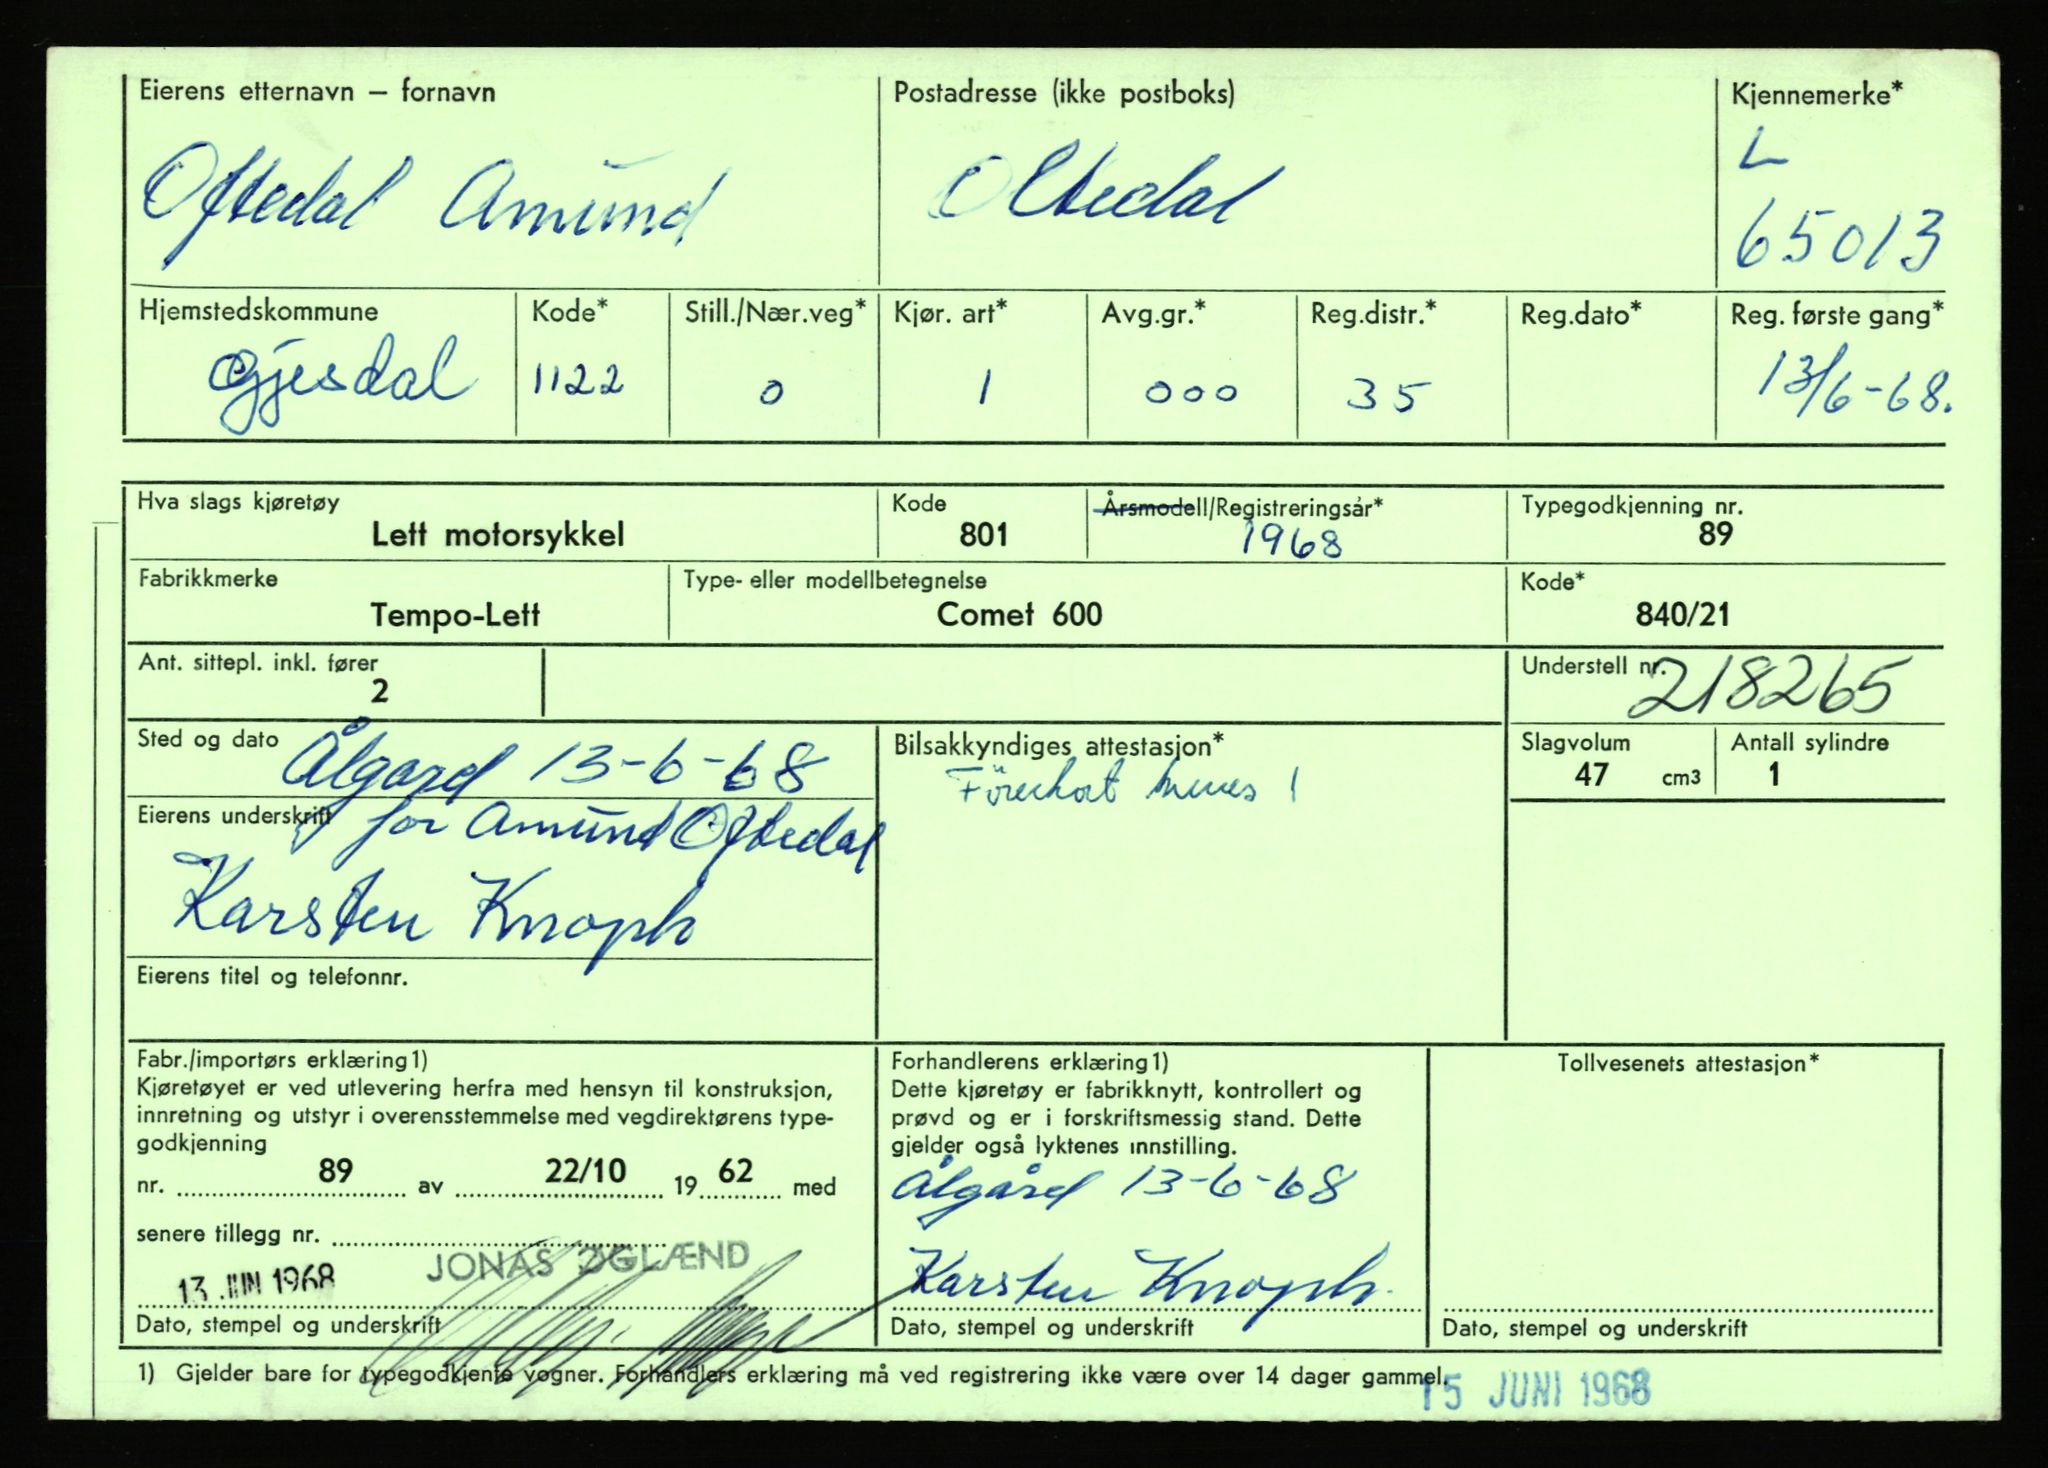 Eierens etternavn – fornavn
Postadresse (ikke postboks)
Kjennemerke*
Oftedal Amund
Oltedal
L
65013
Hjemstedskommune
Kode*
Still./Nær.veg*
Kjør. art*
Avg.gr.*
Reg.distr.*
Reg.dato*
Reg. første gang*
Gjesdal
1122
0
1
000
35
13/6-68.
Hva slags kjøretøy
Kode
Årsmodell/Registreringsår*
Typegodkjenning nr.
Lett motorsykkel
801
1968
89
Fabrikkmerke
Type- eller modellbetegnelse
Kode*
Tempo-Lett
Comet 600
840/21
Ant. sittepl. inkl. fører
2
Understell nr.
218265
Sted og dato
Ålgård 13-6-68
Bilsakkyndiges attestasjon*
Slagvolum
47 cm3
Antall sylindre
1
Eierens underskrift
for Amund Oftedal
Karsten Knoph
Eierens titel og telefonnr.
Fabr./importørs erklæring1)
Kjøretøyet er ved utlevering herfra med hensyn til konstruksjon,
innretning og utstyr i overensstemmelse med vegdirektørens type-
godkjenning
nr. 89 av 22/10 19 62 med
senere tillegg nr.
JONAS ØGLÆND
13 JUN 1968
Dato, stempel og underskrift
Forhandlerens erklæring1)
Dette kjøretøy er fabrikknytt, kontrollert og
prøvd og er i forskriftsmessig stand. Dette
gjelder også lyktenes innstilling.
Ålgård 13-6-68
Karsten Knoph.
Dato, stempel og underskrift
Tollvesenets attestasjon*
Dato, stempel og underskrift
1) Gjelder bare for typegodkjente vogner. Forhandlers erklæring må ved registrering ikke være over 14 dager gammel.
15 JUNI 1968